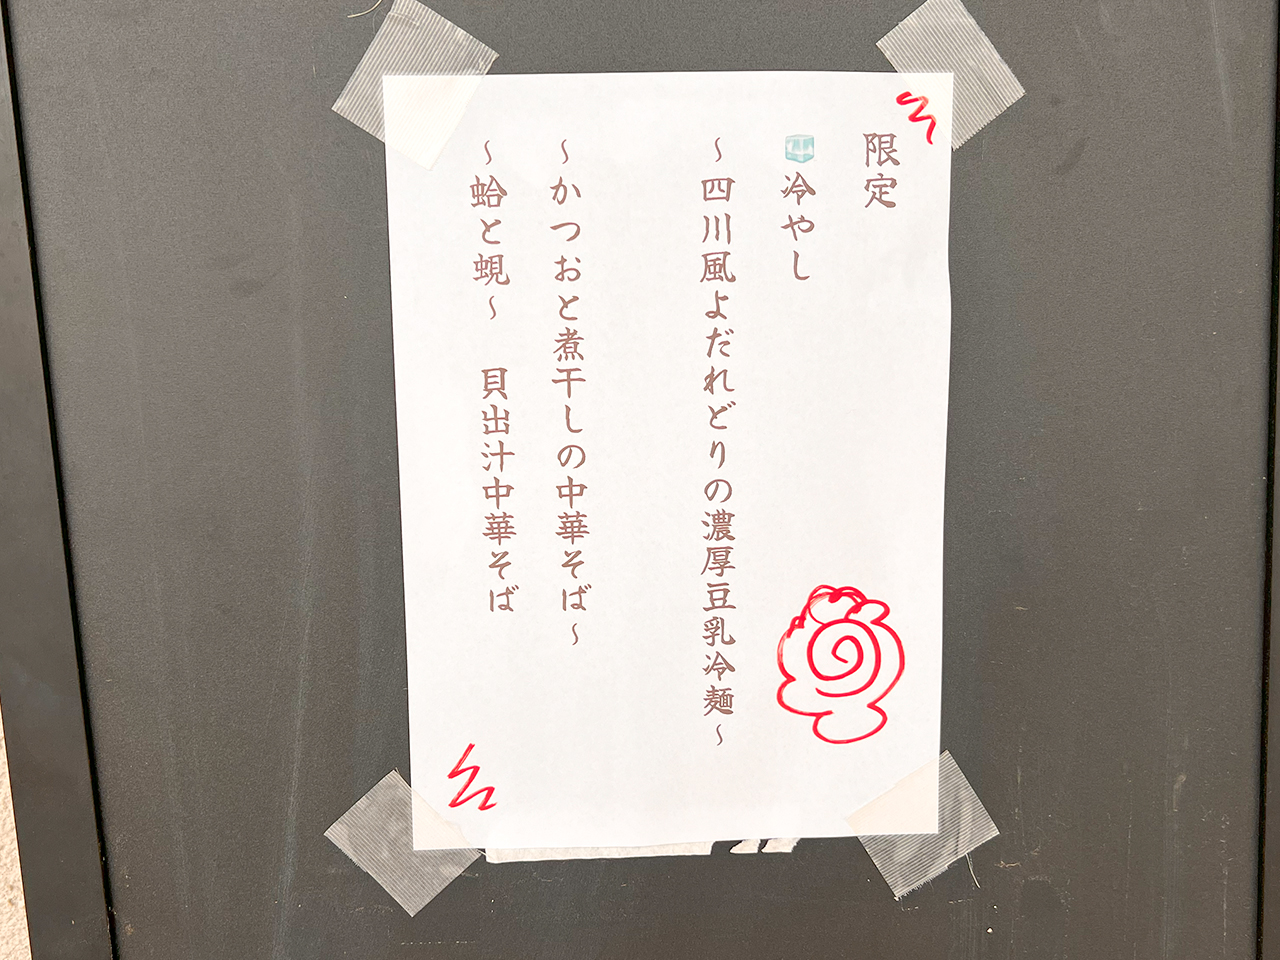 限定
🧊冷やし
～四川風よだれどりの濃厚豆乳冷麺～
～かつおと煮干しの中華そば～
～蛤と蜆～　貝出汁中華そば